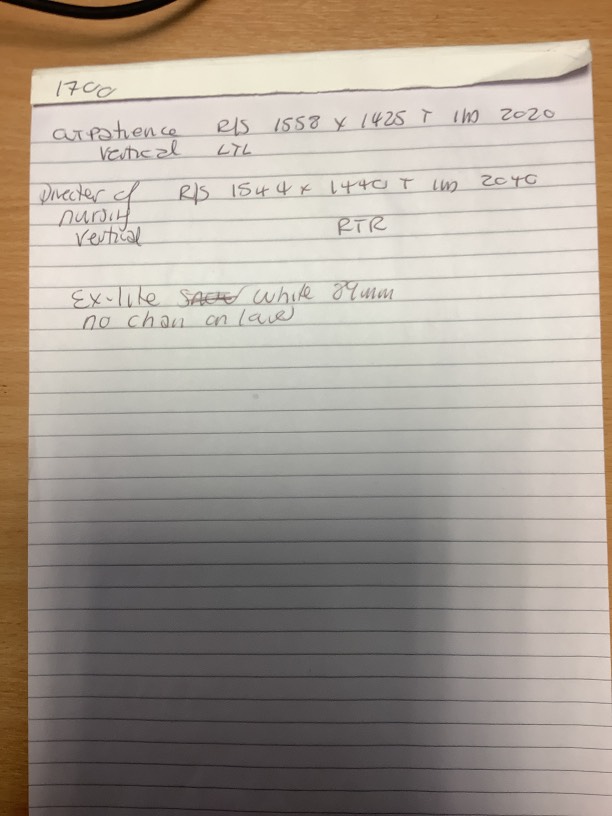 1700
outpatience R/S 1558 x 1425 T 1m 2020
vertical LTL
Director of R/S 1544 x 1440 T 1m 2040
nursing
vertical RTR
Ex-lite white 89mm
no chain on lave